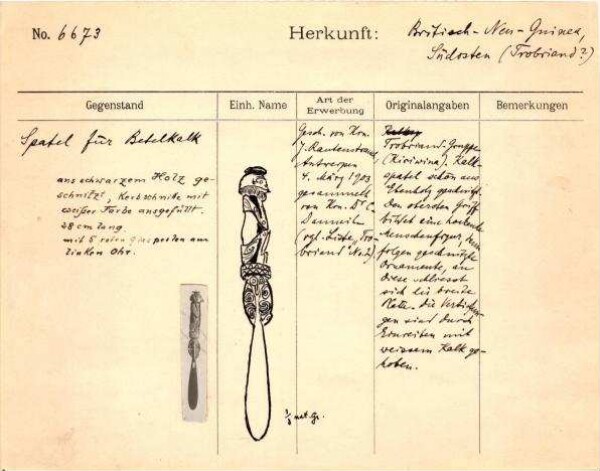 No. 6673
Herkunft:
Britisch-Neu-Guinea,
Südosten (Trobriand?)
Gegenstand
Einh. Name
Art der
Erwerbung
Originalangaben
Bemerkungen
Spatel für Betelkalk
aus schwarzem Holz ge-
schnitzt, Kerbschnitte mit
weißer Farbe ausgefüllt.
28 cm lang.
mit 5 roten Glasperlen am
linken Ohr.
Gesch. von Hrn.
J. Rautenstrauch,
Antwerpen
4. März 1903
gesammelt
von Hrn. Dr. C.
(vgl. Liste "Tro-
briand" No. 2).
Trobriand-Gruppe
(Kiriwina). Kalk-
spatel schön aus
Ebenholz geschnitzt.
Den obersten Griff
bildet eine hockende
Menschenfigur, dann
folgen geschnitzte
Ornamente, an
diese schliesst
sich die breite
die Vertiefun-
gen sind durch
Einreiben mit
weissem Kalk ge-
hoben.
1/3 nat. Gr.